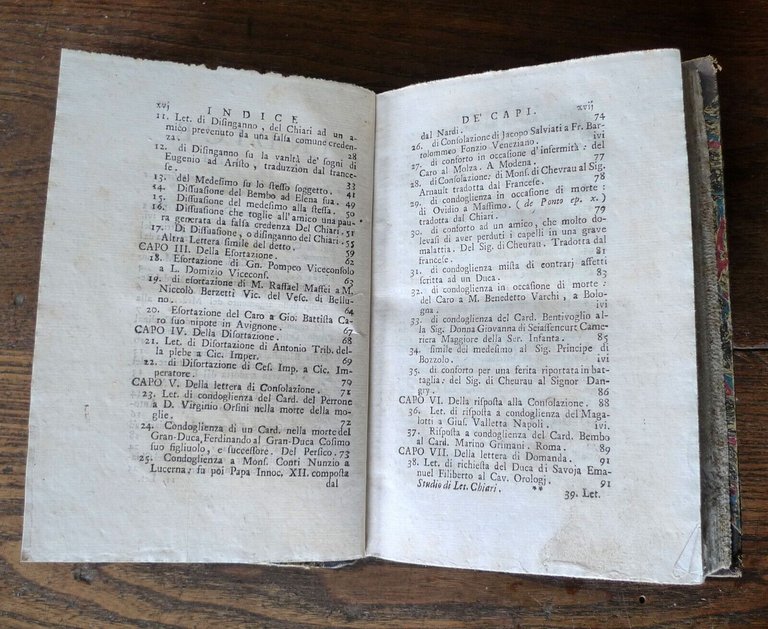 xvj INDICE
11. Let. di Disinganno, del Chiari ad un a-
mico prevenuto da una falsa comune creden-
za. 28
12. di Disinganno su la vanità de' sogni di
Eugenio ad Aristo, traduzzion dal france-
se. 33
13. del Medesimo su lo stesso soggetto. 41
14. Dissuasione del Bembo ad Elena sua. 49
15. Dissuasione del medesimo alla stessa. 50
16. Dissuasione che toglie all'amico una pau-
ra generata da falsa credenza Del Chiari. 51
17. Di Dissuasione, o disinganno del Chiari. 55
Altra Lettera simile del detto. 59
CAPO III. Della Esortazione. 62
18. Esortazione di Gn. Pompeo Viceconsolo
a L. Domizio Viceconf. 63
19. di esortazione di M. Raffael Maffei a M.
Niccolò Berzetti Vic. del Vesc. di Bellu-
no. 64
20. Esortazione del Caro a Gio. Battista Ca-
ro suo nipote in Avignone. 67
CAPO IV. Della Disortazione. 68
21. Let. di Disortazione di Antonio Trib. del-
la plebe a Cic. Imper. 69
22. di Disortazione di Ces. Imp. a Cic. Im-
peratore. 70
CAPO V. Della lettera di Consolazione. 71
23. Let. di condoglienza del Card. del Perrone
a D. Virginio Orsini nella morte della mo-
glie. 72
24. Condoglienza di un Card. nella morte del
Gran-Duca, Ferdinando al Gran-Duca Cosimo
suo figliuolo, e successore. Del Persico. 73
25. Condoglienza a Mons. Conti Nunzio a
Lucerna; fu poi Papa Innoc. XII. composta
dal
DE' CAPI. xvij
dal Nardi. 74
26. di Consolazione di Jacopo Salviati a Fr. Bar-
tolommeo Fonzio Veneziano. ivi
27. di conforto in occasione d'infermità: del
Caro al Molza. A Modena. 77
28. di Consolazione: di Mons. di Chevrau al Sig.
Arnault tradotta dal Francese. 78
29. di condoglienza in occasione di morte:
di Ovidio a Massimo. (de Ponto ep. x.)
tradotta dal Chiari. 79
30. di conforto ad un amico, che molto do-
levasi di aver perduti i capelli in una grave
malattia. Del Sig. di Cheurau. Tradotta dal
francese. 81
31. di condoglienza mista di contrarj affetti
scritta ad un Duca. 83
32. di condoglienza in occasione di morte:
del Caro a M. Benedetto Varchi, a Bolo-
gna. ivi
33. di condoglienza del Card. Bentivoglio al-
la Sig. Donna Giovanna di Sciassencurt Came-
riera Maggiore della Ser. Infanta. 85
34. simile del medesimo al Sig. Principe di
Bozzolo. ivi
35. di conforto per una ferita riportata in bat-
taglia: del Sig. di Cheurau al Signor Dan-
gry. 86
CAPO VI. Della risposta alla Consolazione. 88
36. Let. di risposta a condoglienza del Maga-
lotti a Gius. Valletta Napoli. ivi
37. Risposta a condoglienza del Card. Bembo
al Card. Marino Grimani. Roma. 89
CAPO VII. Della lettera di Domanda. 91
38. Let. di richiesta del Duca di Savoja Ema-
nuel Filiberto al Cav. Orologj. 91
Studio di Let. Chiari. ** 39. Let.